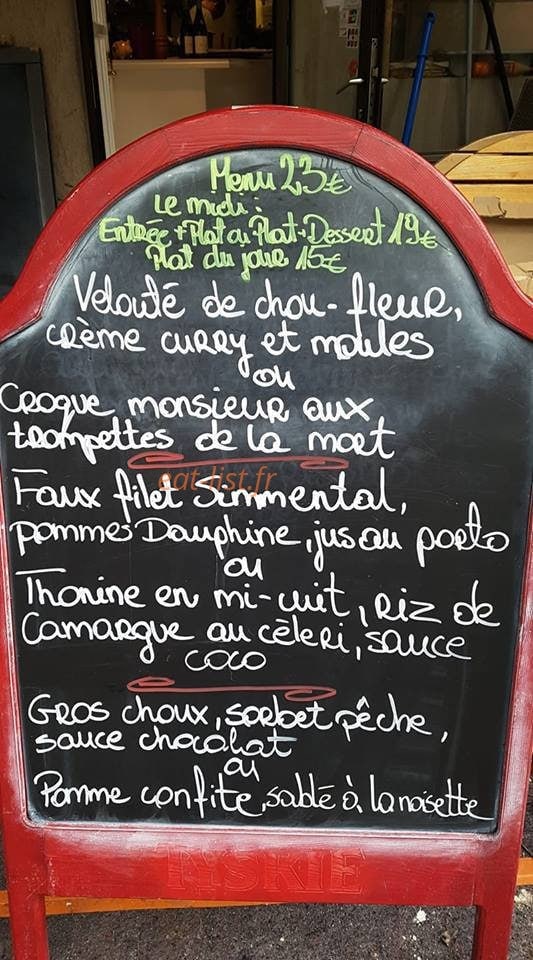 Menu 23€
Le midi:
Entrée + Plat ou Plat + Dessert 19€
Plat du jour 15€
Velouté de chou-fleur,
crème curry et moules
ou
Croque monsieur aux
trompettes de la mort
eat-list.fr
Faux filet Simmental,
pommes Dauphine, jus au porto
ou
Thonine en mi-cuit, riz de
Camargue au céleri, sauce
coco
Gros choux, sorbet pêche,
sauce chocolat
ou
Pomme confite, sablé à la noisette
TYSKIE